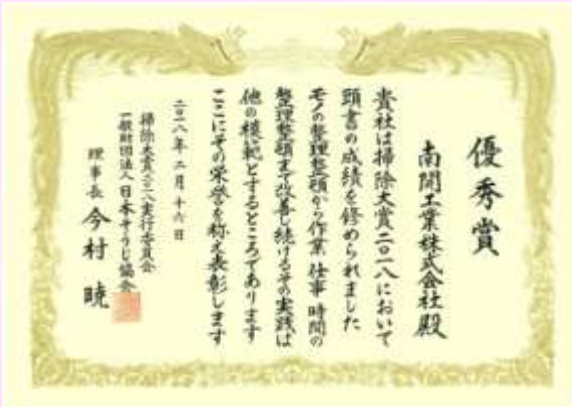 優秀賞
南開工業株式会社殿
貴社は掃除大賞二〇一八において
頭書の成績を修められました
モノの整理整頓から作業 仕事 時間の
整理整頓まで改善し続けるその実践は
他の模範とするところであります
ここにその栄誉を称え表彰します
二〇一八年二月十六日
掃除大賞二〇一八実行委員会
一般財団法人日本そうじ協会
理事長 今村 暁